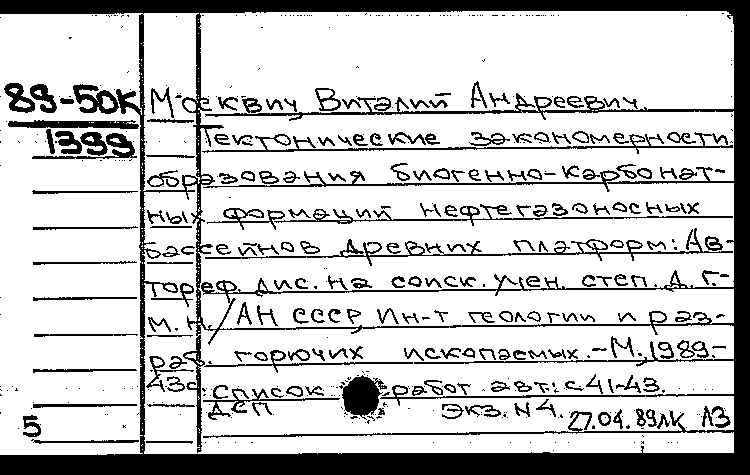 89-50К Москвич, Виталий Андреевич.
1399 Тектонические закономерности
образования биогенно-карбонат-
ных формаций нефтегазоносных
бассейнов древних платформ: Ав-
тореф. дис. на соиск. учен. степ. д. г.-
м. н. / АН СССР, Ин-т геологии и раз-
раб. горючих ископаемых. - М., 1989. -
43с список работ авт: с 41-43.
ДСП Экз. N 4. 27.04.89лк ЛЗ
5